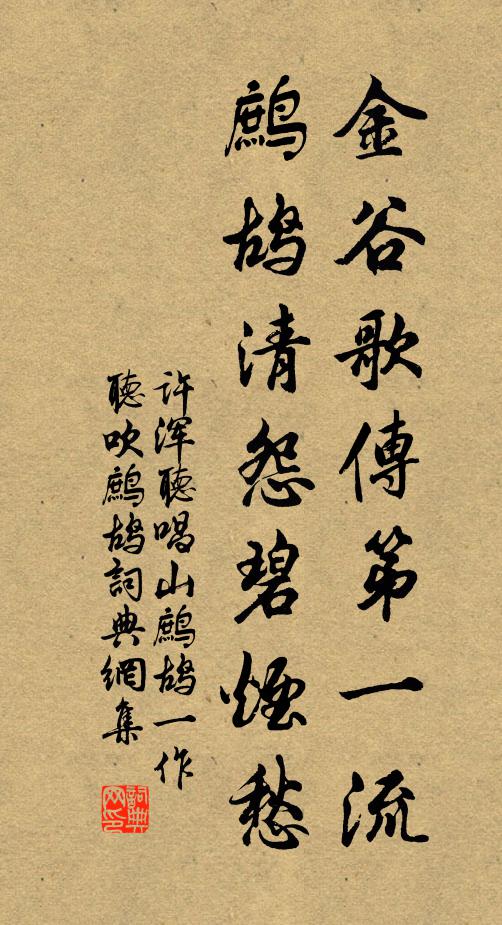 金谷歌傳第一流
鷓鴣清怨碧煙愁
许浑聽唱山鷓鴣一作
聽吹鷓鴣詞典網集
詞典網印